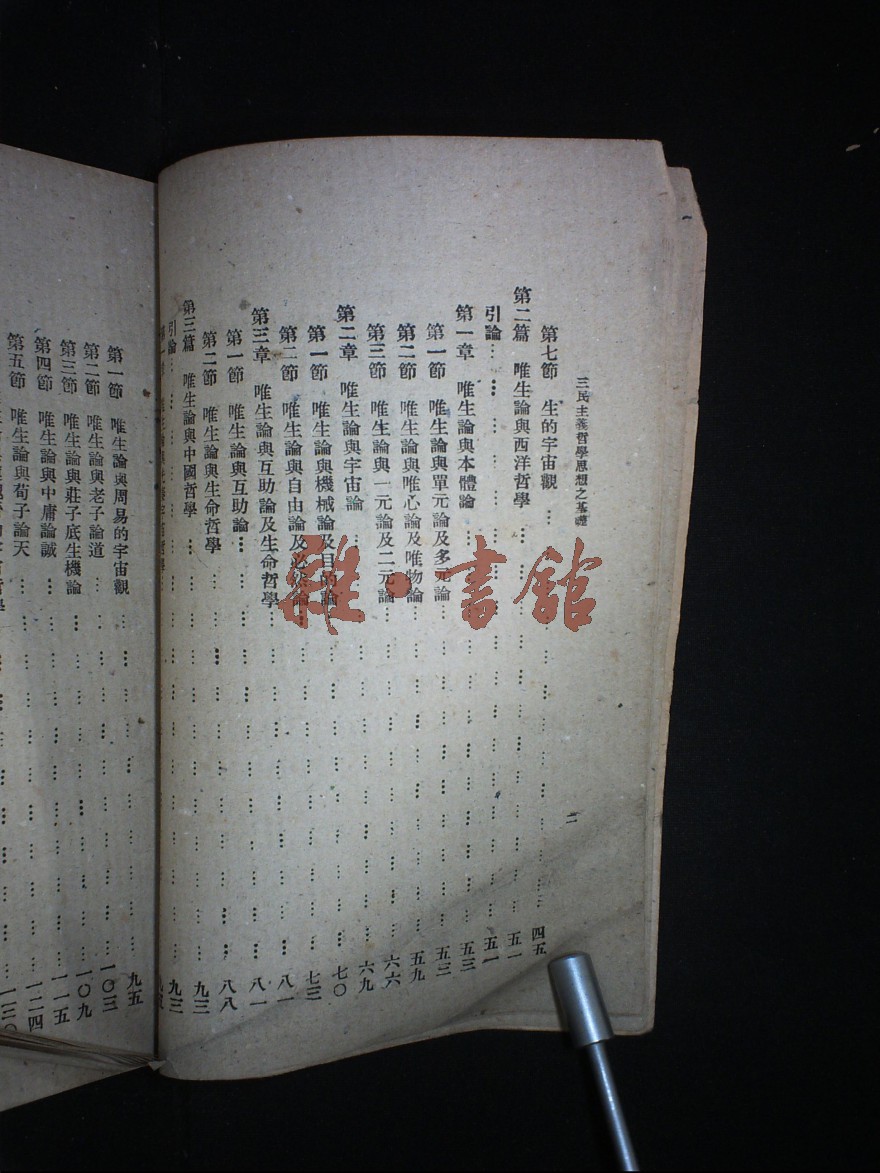 三民主義哲學思想之基礎
二
第七節 生的宇宙觀 四五
第二篇 唯生論與西洋哲學 五一
引論 五一
第一章 唯生論與本體論 五三
第一節 唯生論與單元論及多元論 五三
第二節 唯生論與唯心論及唯物論 五九
第三節 唯生論與一元論及二元論 六六
第二章 唯生論與宇宙論 六九
第一節 唯生論與機械論及目的論 七〇
第二節 唯生論與自由論及必然論 七三
第三章 唯生論與互助論及生命哲學 八一
第一節 唯生論與互助論 八一
第二節 唯生論與生命哲學 八八
第三篇 唯生論與中國哲學 九三
引論 九三
第一節 唯生論與周易的宇宙觀 九五
第二節 唯生論與老子論道 一〇三
第三節 唯生論與莊子底生機論 一〇九
第四節 唯生論與中庸論誠 一一五
第五節 唯生論與荀子論天 一二四
一三〇
雜·書館